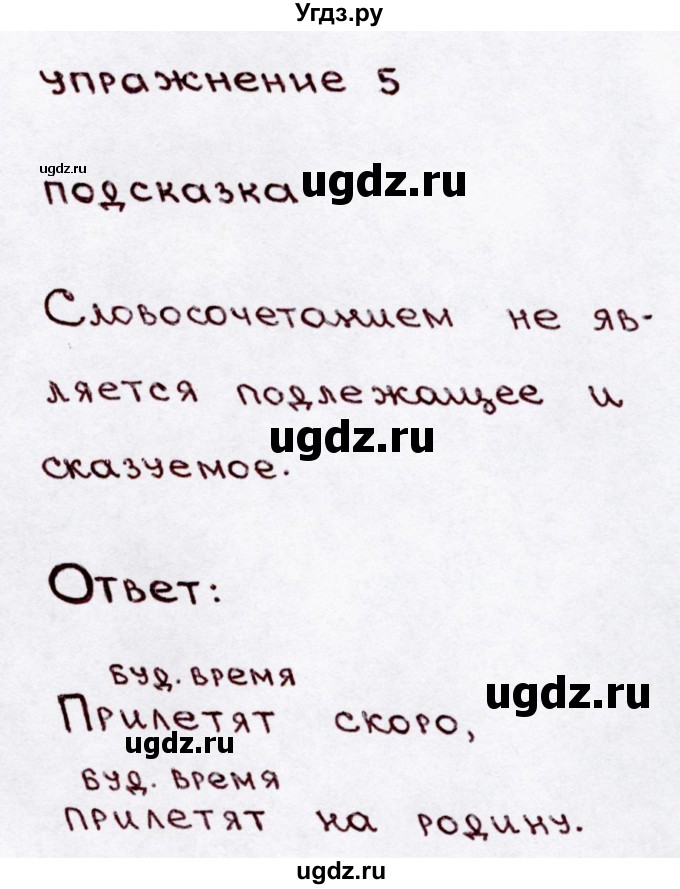 Угдз.ру
упражнение 5
ugdz.ru
подсказка ugdz.ru
Словосочетанием не яв-
ляется подлежащее и
ugdz.ru
сказуемое.
Ответ:
буд. время
ugdz.ru
Прилетят скоро,
ugdz.ru
буд. время
прилетят на родину.
ugdz.ru